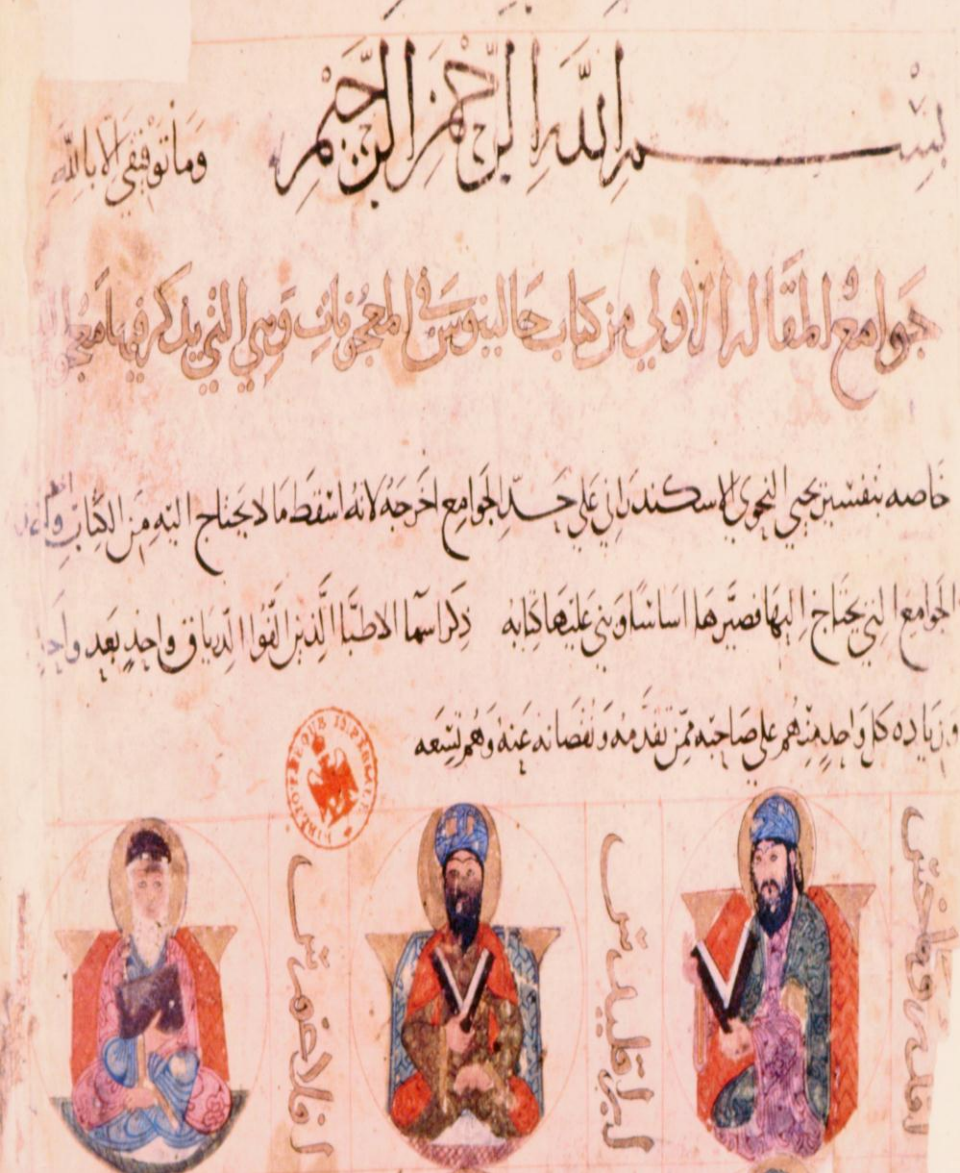 بِسْمِ اللَّهِ الرَّحْمَنِ الرَّحِيمِ وَمَا تَوْفِيقِي إِلَّا بِاللَّهِ
جوامع المقاله الاولي من كتاب جالينوس في المعجونات وهي التي يذكر فيها معجون
خاصه بتفسير يحيي النحوي الاسكندراني علي حد الجوامع اخرجه لانه اسقط ما لا يحتاج اليه من الكتاب
الجوامع التي يحتاج اليها فصيرها اساسا وبني عليها كتابه ذكر اسما الاطبا الذين الفوا الدرياق واحد بعد واحد
وزياده كل واحد منهم علي صاحبه ممن تقدمه ونقصانه عنه وهم تسعه